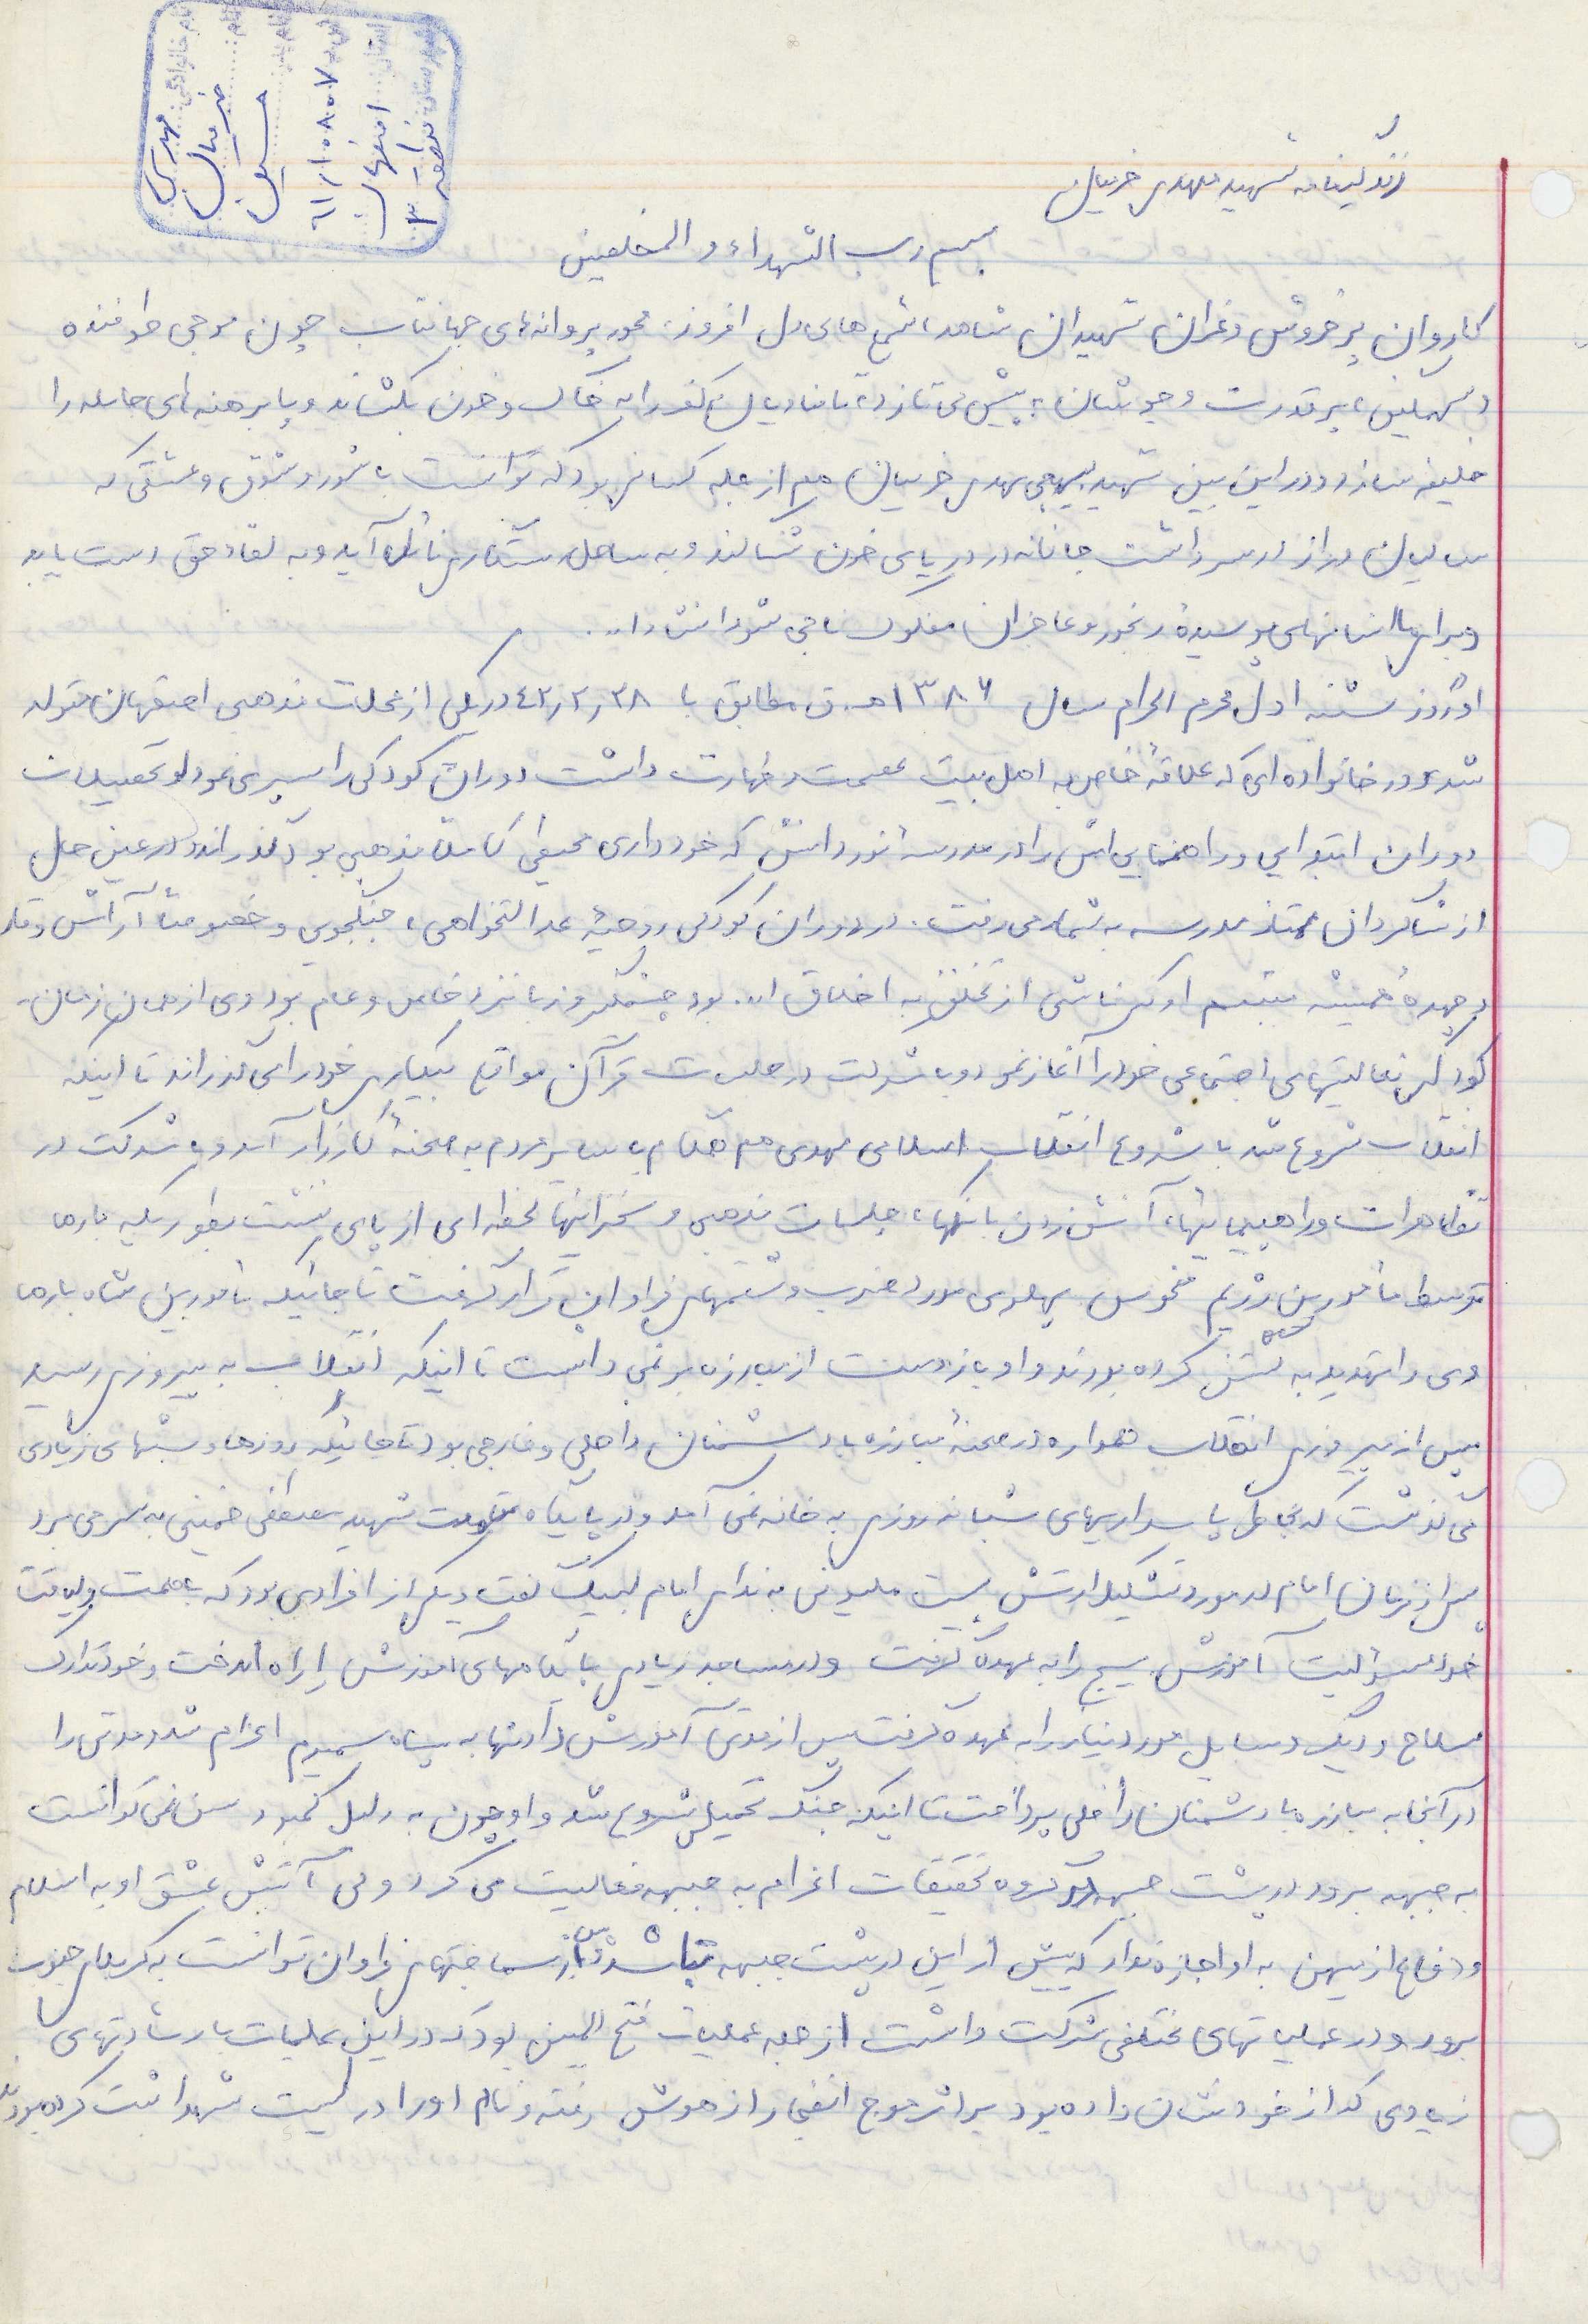 نام خانوادگی: مهدی
نام: خزییان
حسین
۶۱۱۰۸۰۰۷
استان: اصفهان
زندگینامه شهید مهدی خزییان
بسم رب الشهداء و المخلصین
کاروان پر خروش و غران شهیدان شاهد، شمع های دل افروز، محور پروانه های جهانتاب چون موجی طوفنده
و سهمگین، پر قدرت و جوشان، پیش می تازد، تا کفر را به خاک و خون بکشاند و پا برهنه های جامعه را
خلیفه سازد و در این بین شهید بسیجی مهدی خزییان هم از جمله کسانی بود که توانست با شور و شوق و عشقی که
سالیان دراز در سر داشت جانانه در دریای خون شنا کند و به ساحل رستگاری نائل آید و به لقاء حق دست یابد
و برای انسانهای پوسیده رنجور و عاجزان مفلوک ناجی شود انشاءا...
او روز شنبه اول محرم الحرام سال ۱۳۸۶ ه.ق مطابق با ۴۲٫۲٫۲۸ در یکی از محلات مذهبی اصفهان متولد
شد و در خانواده ای که علاقهٔ خاص به اهل بیت عصمت و طهارت داشت دوران کودکی را سپری نمود و تحصیلات
دوران ابتدایی و راهنمایی اش را در مدرسه انور دانش که خود دارای محیطی کاملا مذهبی بود گذراند و در عین حال
از شاگردان ممتاز مدرسه به شمار می رفت. در دوران کودکی روحیهٔ عدالتخواهی، جنگجویی و خصوصاً آرامش وقار
و چهرهٔ همیشه متبسم او که ناشی از تخلق به اخلاق ا... بود چشمگیر و زبانزد خاص و عام بود وی از همان زمان-
کودکی فعالیتهای اجتماعی خود را آغاز نمود و با شرکت در جلسات قرآن مواقع بیکاری خود را می گذراند تا اینکه
انقلاب شروع شد با شروع انقلاب اسلامی مهدی هم همگام با سایر مردم به صحنهٔ کارزار آمد و با شرکت در
تظاهرات و راهپیمائیها، آتش زدن بانکها، جلسات مذهبی و سخنرانیها لحظه ای از پای ننشست بطوریکه بارها
توسط مأمورین رژیم منحوس پهلوی مورد ضرب و شتمهای فراوان قرار گرفت تا جائیکه مأمورین شاه بارها
وی را تهدید به کشتن کرده بودند و او باز دست از مبارزه بر نمی داشت تا اینکه انقلاب به پیروزی رسید
پس از پیروزی انقلاب همواره در صحنهٔ مبارزه با دشمنان داخلی و خارجی بود تا جائیکه روزها و شبهای زیادی
می گذشت که بخاطر پاسداریهای شبانه روزی به خانه نمی آمد و در پایگاه مقاومت شهید مصطفی خمینی به سر می برد
پس از فرمان امام در مورد تشکیل ارتش بیست ملیونی به ندای امام لبیک گفت و یکی از افرادی بود که با همت و لیاقت
خود مسئولیت آموزش بسیج را به عهده گرفت و در مساجد زیادی پایگاههای آموزش را راه انداخت و خود تدارک
سلاح و دیگر وسایل مورد نیاز را به عهده گرفت پس از مدتی آموزش دادنها به سپاه سمیرم اعزام شد و مدتی را
در آنجا به مبارزه با دشمنان داخلی پرداخت تا اینکه جنگ تحمیلی شروع شد و او چون به دلیل کمبود سن نمی توانست
به جبهه برود در پشت جبهه در گروه تحقیقات اعزام به جبهه فعالیت می کرد ولی آتش عشق او به اسلام
و دفاع از میهن به او اجازه نداد که بیش از این در پشت جبهه باشد پس از سماجتهای فراوان توانست به کربلای جنوب
برود و در عملیاتهای مختلفی شرکت داشت از جمله عملیات فتح المبین بود که در این عملیات با رشادتهای
زیادی که از خود نشان داده بود بر اثر موج انفجار از هوش رفته و نام او را در لیست شهدا ثبت کرده بودند